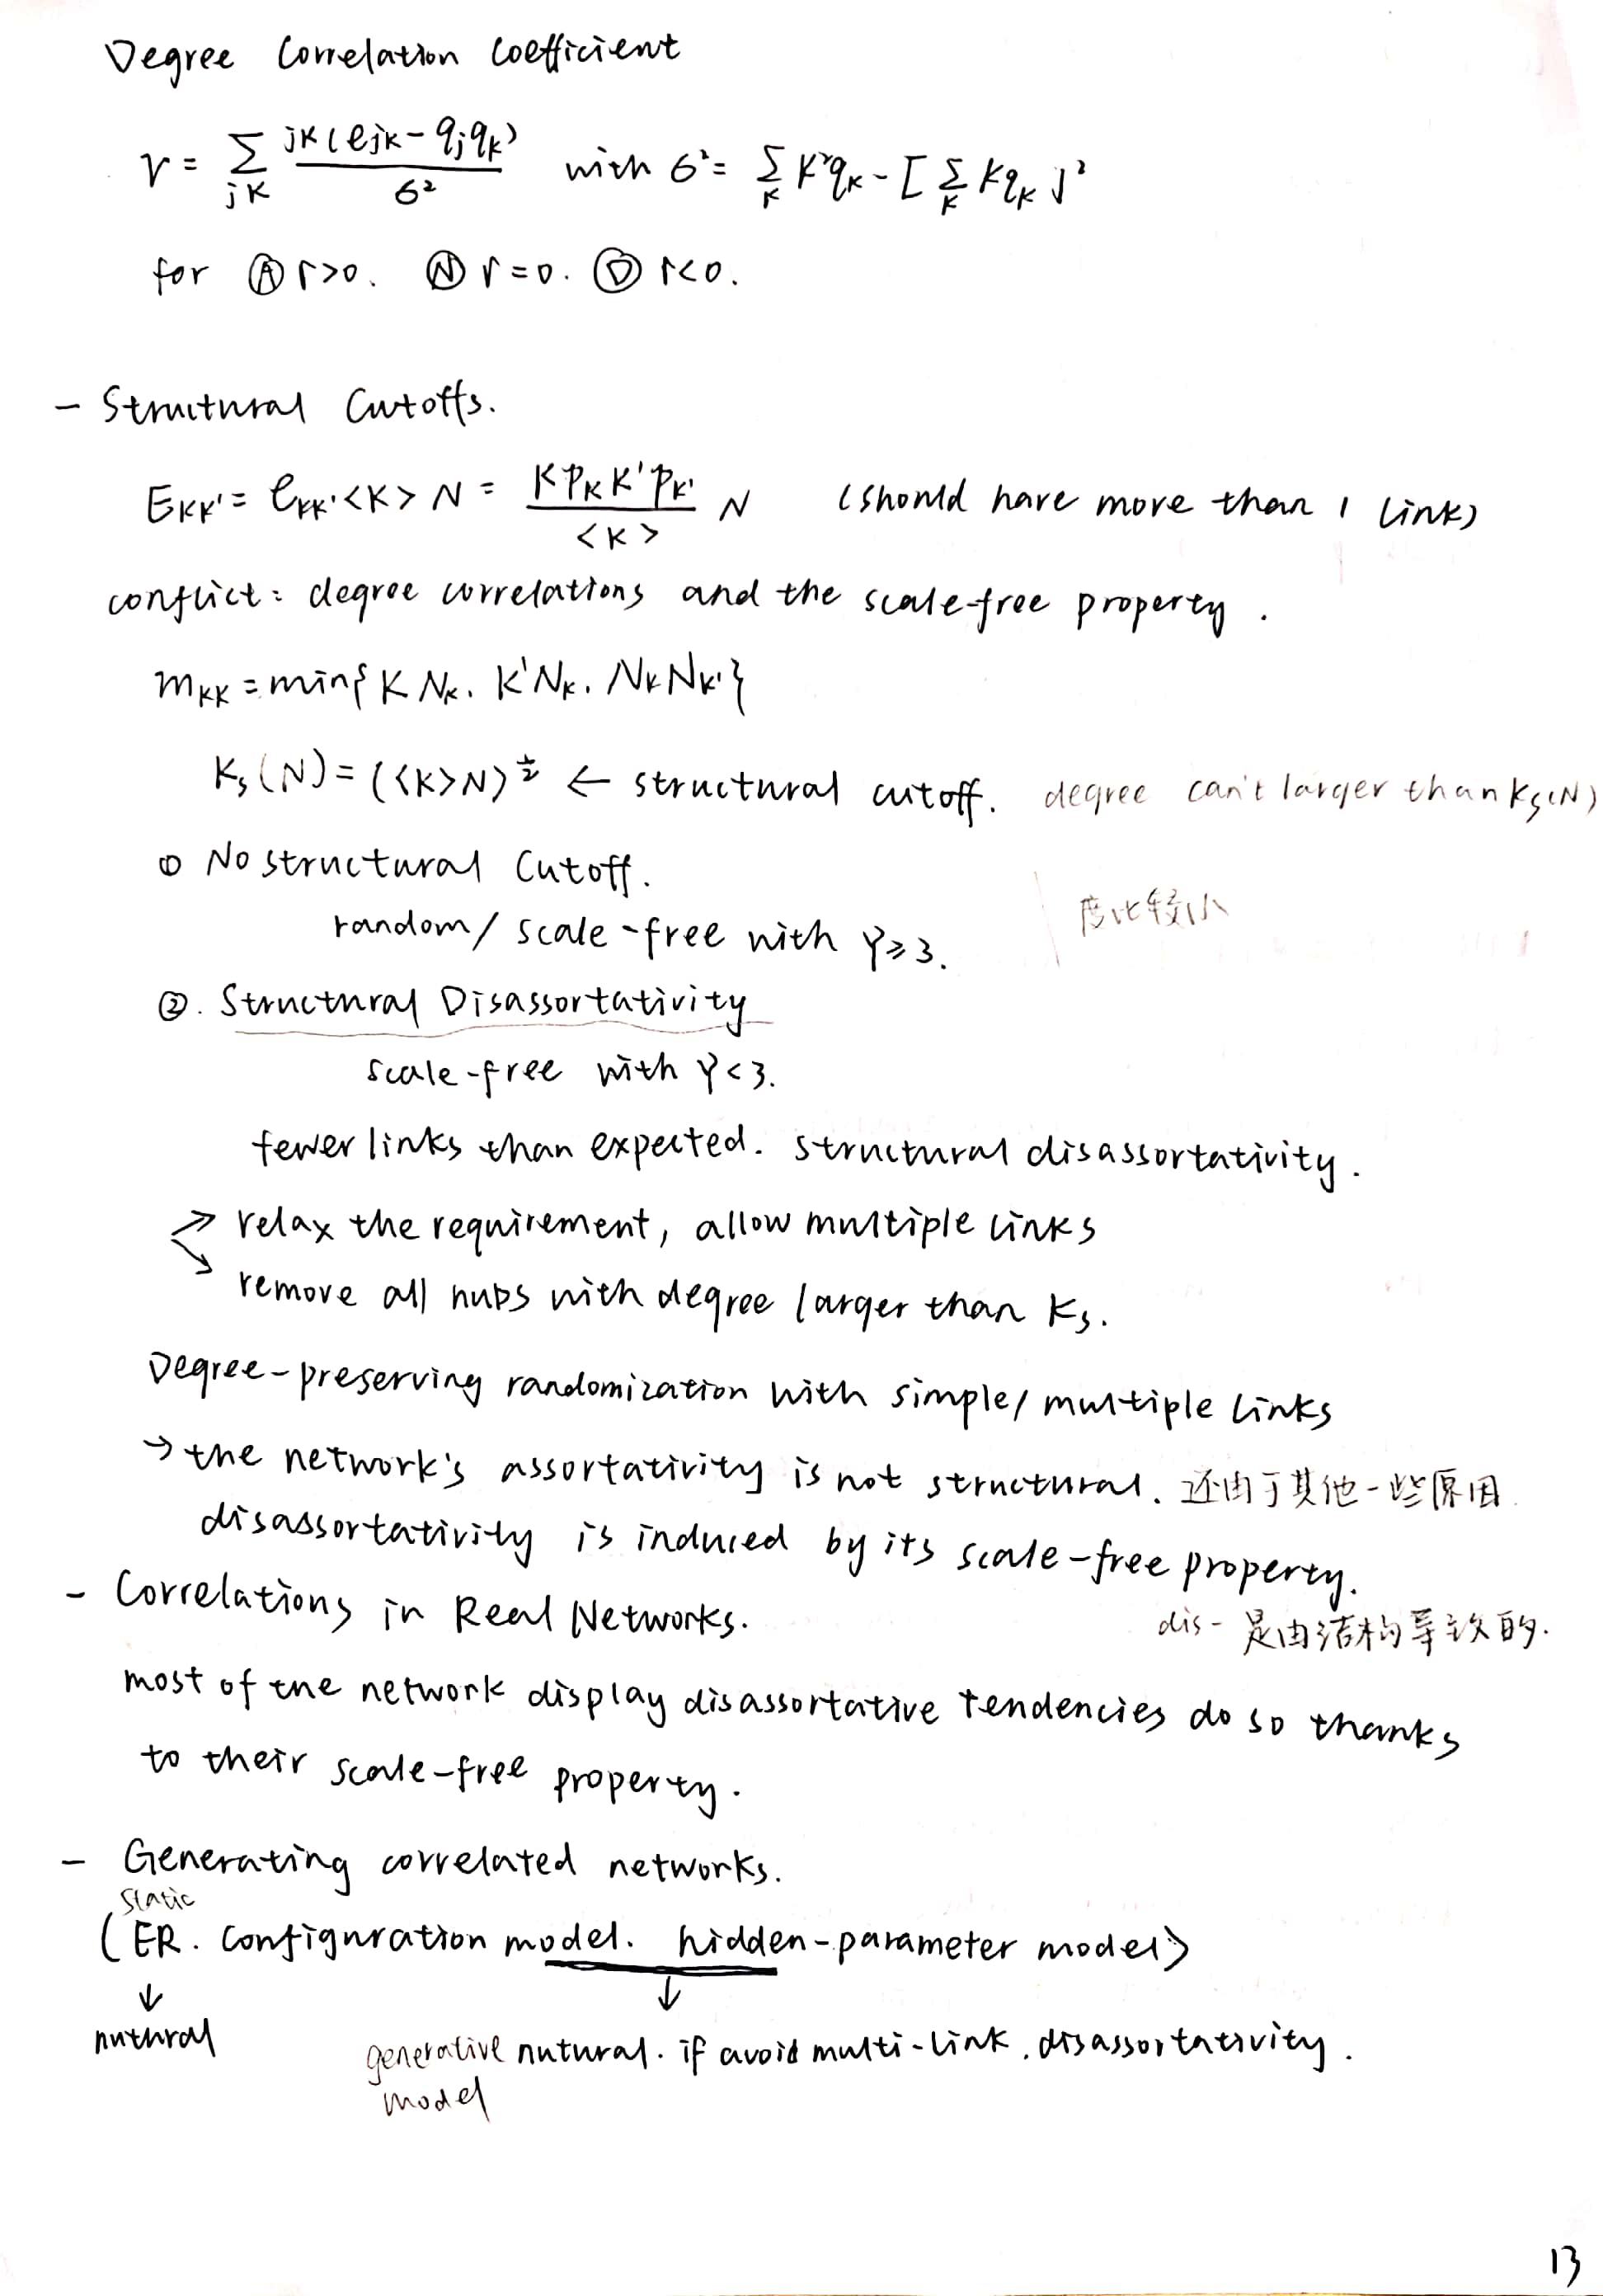 Degree Correlation Coefficient
r = Σ_jk jk(e_jk - q_j q_k) / σ² with σ² = Σ_k k²q_k - [Σ_k kq_k]²
for Ⓐ r>0. Ⓝ r=0. Ⓓ r<0.
- Structural Cutoffs.
E_kk' = e_kk'<k>N = k p_k k' p_k' / <k> N (should have more than 1 link)
conflict: degree correlations and the scale-free property.
m_kk = min{k N_k. k'N_k. N_k N_k'}
k_s(N) = (<k>N)^½ ← structural cutoff. degree can't larger than k_s(N)
① No structural Cutoff.
度比较小
random/ scale-free with γ≥3.
②. Structural Disassortativity
scale-free with γ<3.
fewer links than expected. structural disassortativity.
↗ relax the requirement, allow multiple links
↘ remove all hubs with degree larger than k_s.
Degree-preserving randomization with simple/ multiple links
→ the network's assortativity is not structural. 还由于其他一些原因
disassortativity is induced by its scale-free property.
dis- 是由结构导致的.
- Correlations in Real Networks.
most of the network display disassortative tendencies do so thanks
to their scale-free property.
- Generating correlated networks.
static
(ER. Configuration model. hidden-parameter model)
↓ ↓
nuthral generative nutural. if avoid multi-link. disassortativity.
model
13